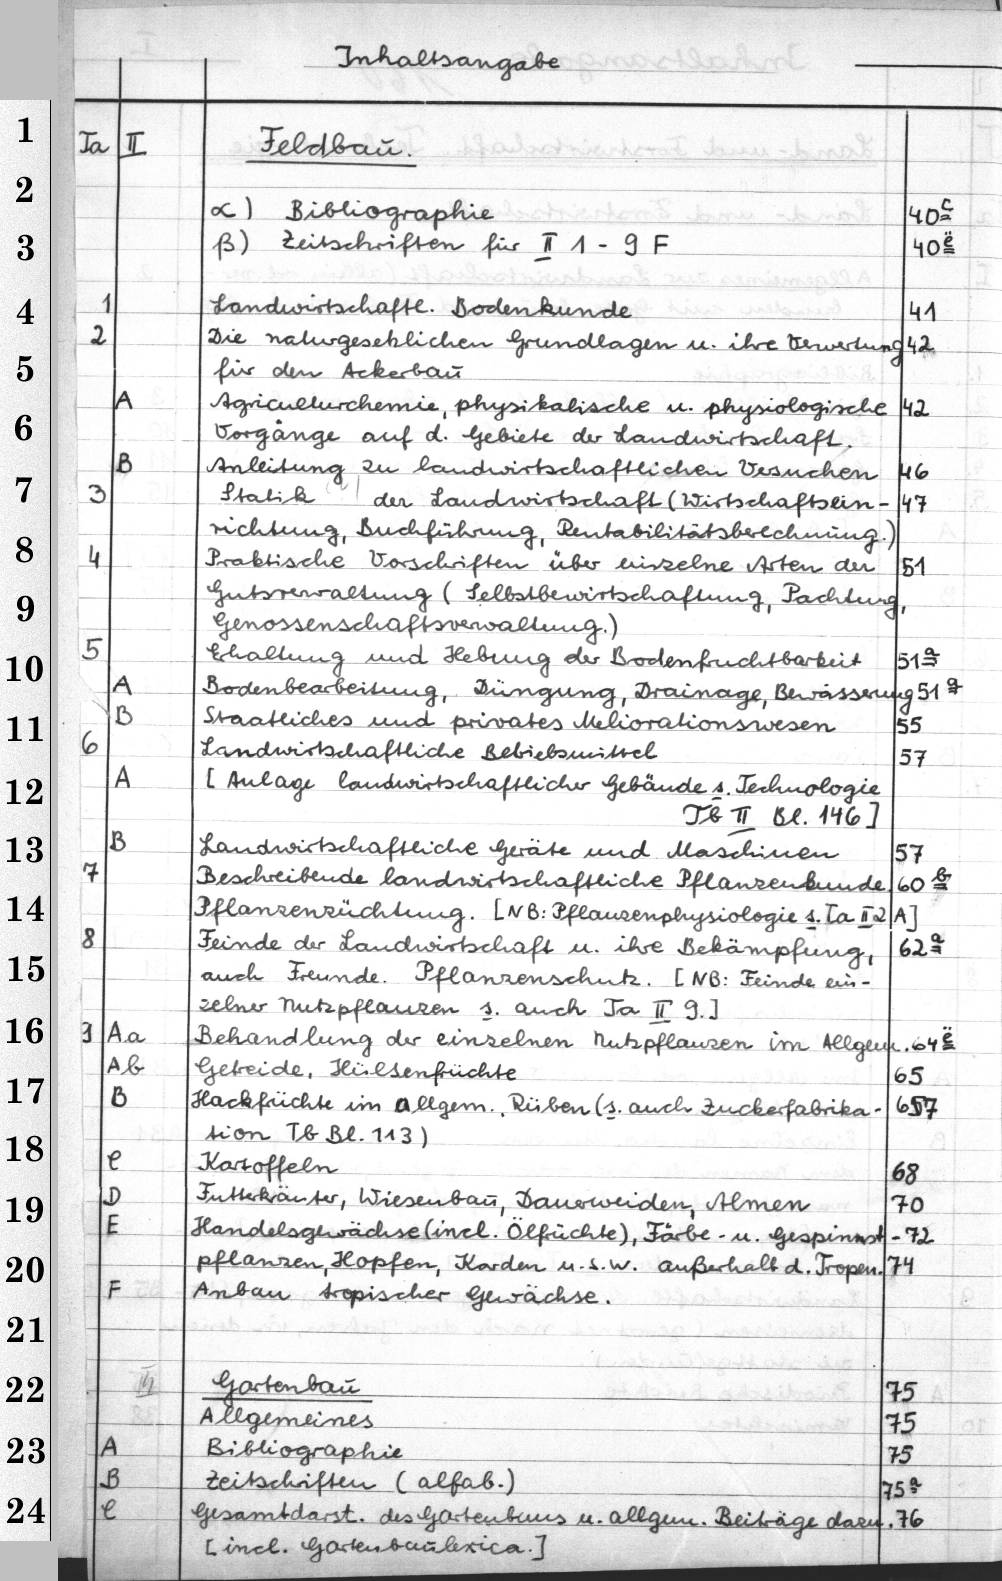 Inhaltsangabe
1
Ia II Feldbau.
2
α) Bibliographie 40c
3
β) Zeitschriften für II 1 - 9 F 40e
4
1 Landwirtschaftl. Bodenkunde 41
2 Die naturgesetzlichen Grundlagen u. ihre Verwertung 42
5
für den Ackerbau
A Agriculturchemie, physikalische u. physiologische 42
6
Vorgänge auf d. Gebiete der Landwirtschaft.
B Anleitung zu landwirtschaftlichen Versuchen 46
7
3 Statik der Landwirtschaft (Wirtschaftsein- 47
richtung, Buchführung, Rentabilitätsberechnung.)
8
4 Praktische Vorschriften über einzelne Arten der 51
9
Gutsverwaltung (Selbstbewirtschaftung, Pachtung,
Genossenschaftsverwaltung.)
5 Erhaltung und Hebung der Bodenfruchtbarkeit 51a
10
A Bodenbearbeitung, Düngung, Drainage, Bewässerung 51a
11
B Staatliches und privates Meliorationswesen 55
6 Landwirtschaftliche Betriebsmittel 57
12
A [Anlage landwirtschaftlicher Gebäude s. Technologie
Tb II Bl. 146]
13
B Landwirtschaftliche Geräte und Maschinen 57
7 Beschreibende landwirtschaftliche Pflanzenkunde 60b
14
Pflanzenzüchtung. [NB: Pflanzenphysiologie s. Ia II 2 A]
8 Feinde der Landwirtschaft u. ihre Bekämpfung, 62a
15
auch Freunde. Pflanzenschutz. [NB: Feinde ein-
zelner Nutzpflanzen s. auch Ia II 9.]
16
9 Aa Behandlung der einzelnen Nutzpflanzen im Allgem. 64e
Ab Getreide, Hülsenfrüchte 65
17
B Hackfrüchte im allgem., Rüben (s. auch Zuckerfabrika- 67
tion Tb Bl. 113)
18
C Kartoffeln 68
D Futterkräuter, Wiesenbau, Dauerweiden, Almen 70
19
E Handelsgewächse (incl. Ölfrüchte), Färbe- u. Gespinnst- 72
20
pflanzen, Hopfen, Karden u.s.w. außerhalb d. Tropen. 74
F Anbau tropischer Gewächse.
21
22
III Gartenbau 75
Allgemeines 75
23
A Bibliographie 75
B Zeitschriften (alfab.) 75a
24
C Gesamtdarst. des Gartenbaus u. allgem. Beiträge dazu. 76
[incl. Gartenbaulexica.]